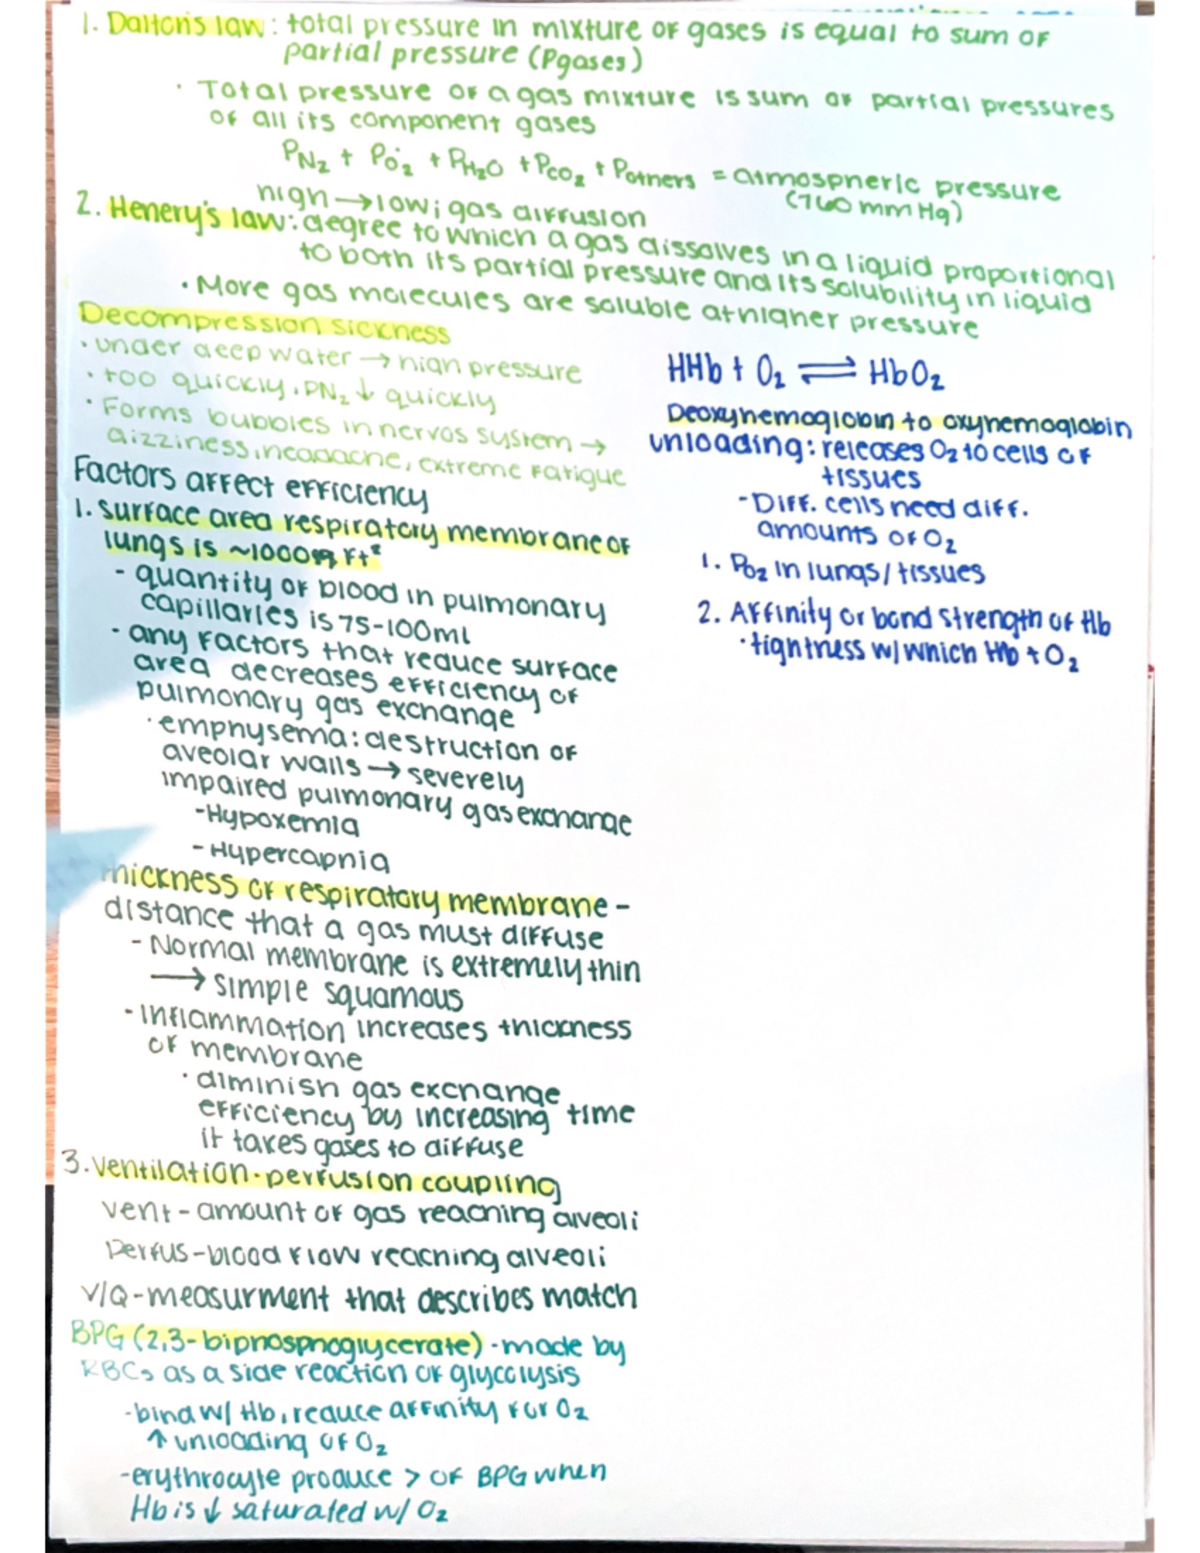 1. Dalton's law: total pressure in mixture of gases is equal to sum of
partial pressure (Pgases)
· Total pressure of a gas mixture is sum of partial pressures
of all its component gases
PN₂ + PO₂ + PH₂O + PCO₂ + Pothers = atmospheric pressure
(760 mmHg)
high → low; gas diffusion
2. Henery's law: degree to which a gas dissolves in a liquid proportional
to both its partial pressure and its solubility in liquid
· More gas molecules are soluble at higher pressure
Decompression sickness
· under deep water → high pressure
· too quickly, PN₂ ↓ quickly
· Forms bubbles in nervos system →
dizziness, headache, extreme fatigue
Factors affect efficiency
1. surface area respiratory membrane of
lungs is ~1000 ft²
- quantity of blood in pulmonary
capillaries is 75-100ml
- any factors that reduce surface
area decreases efficiency of
pulmonary gas exchange
· emphysema: destruction of
aveolar walls → severely
impaired pulmonary gas exchange
- Hypoxemia
- Hypercapnia
thickness of respiratory membrane -
distance that a gas must diffuse
- Normal membrane is extremely thin
→ simple squamous
- Inflammation increases thickness
of membrane
· diminish gas exchange
efficiency by increasing time
it takes gases to diffuse
3. Ventilation-perfusion coupling
vent - amount of gas reaching alveoli
Perfus - blood flow reaching alveoli
V/Q - measurment that describes match
BPG (2,3-biphosphoglycerate) - made by
RBCs as a side reaction of glycolysis
- bind w/ Hb, reduce affinity for O₂
↑ unloading of O₂
- erythrocyte produce > of BPG when
Hb is ↓ saturated w/ O₂
HHb + O₂ ⇌ HbO₂
Deoxyhemoglobin to oxyhemoglobin
unloading: releases O₂ to cells of
tissues
- Diff. cells need diff.
amounts of O₂
1. PO₂ in lungs/tissues
2. Affinity or bond strength of Hb
· tightness w/ which Hb + O₂